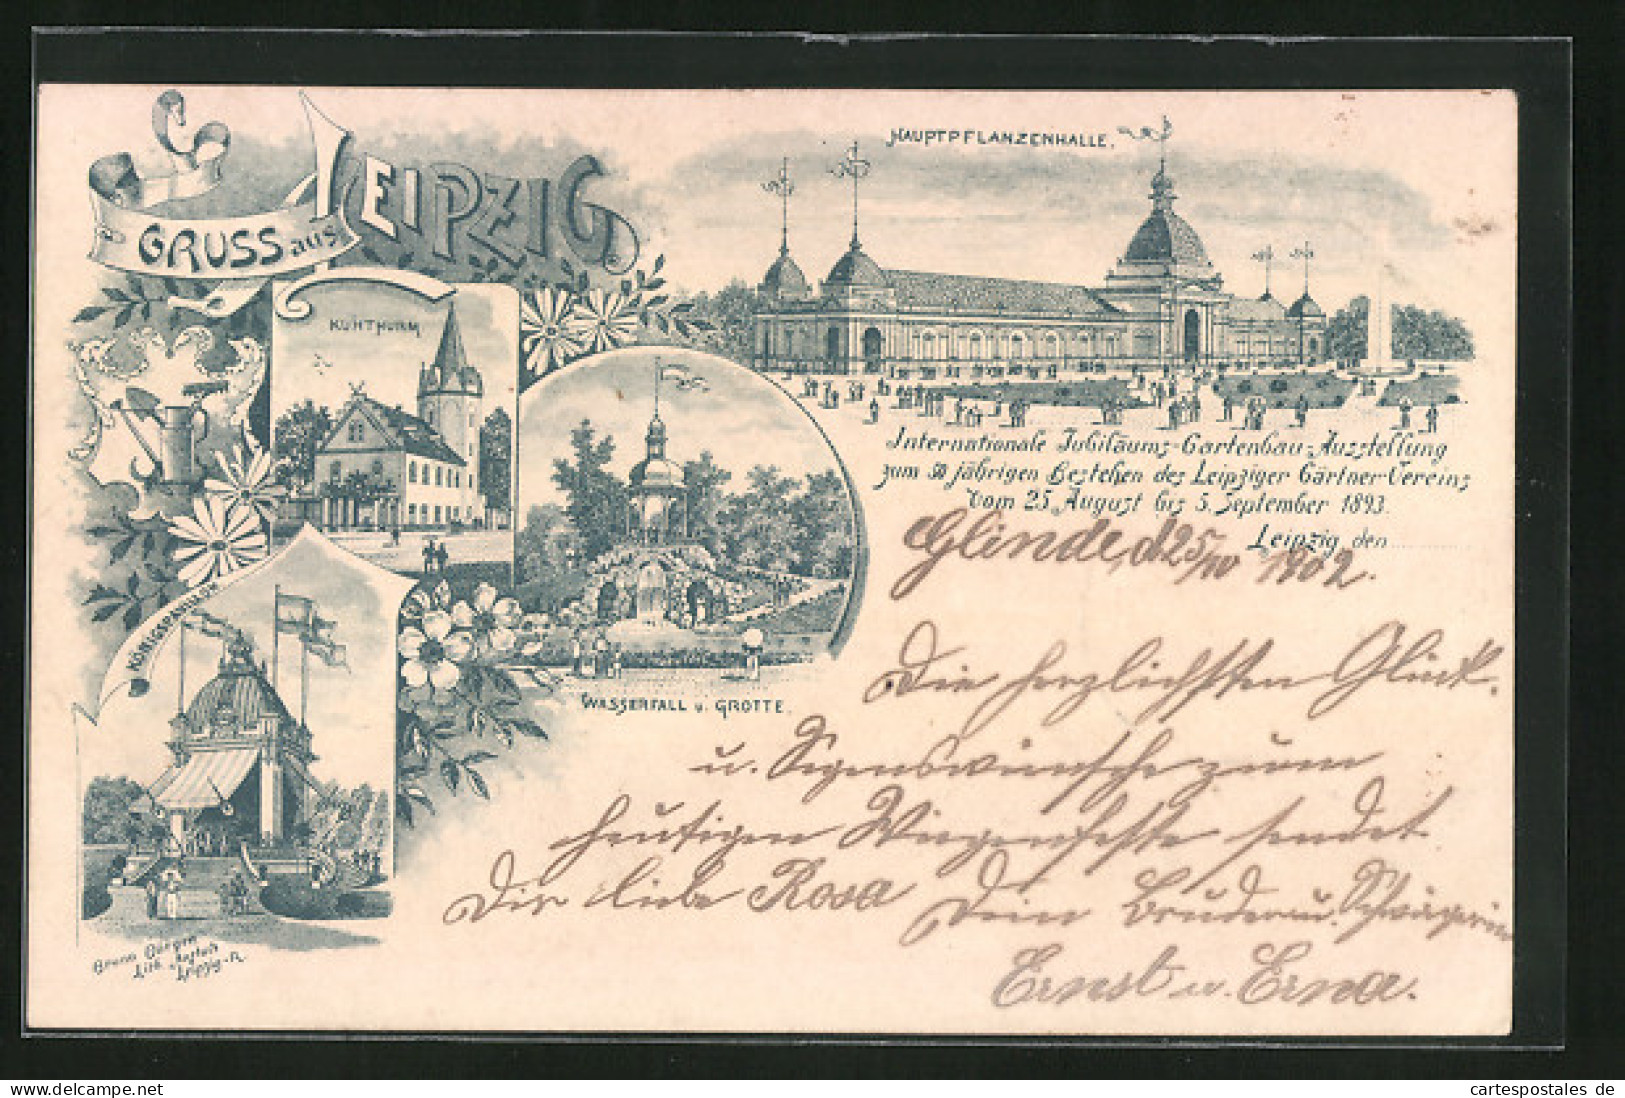 GRUSS aus LEIPZIG.
HAUPTPFLANZENHALLE.
KUHTHURM
KÖNIGSPAVILLON
WASSERFALL u. GROTTE.
Internationale Jubiläums-Gartenbau-Ausstellung
zum 50 jährigen Bestehen des Leipziger Gärtner-Vereins
vom 25. August bis 5. September 1893.
Leipzig den
Glinde, d 25/10 1902.
Die herzlichsten Glück-
u. Segenswünsche zum
heutigen Wiegenfeste sendet
Dir liebe Rosa Dein Bruder u. Schwägerin
Ernst u. Erna.
Bruno Bürger
Lith. Anstalt
Leipzig-R.
cartespostales de